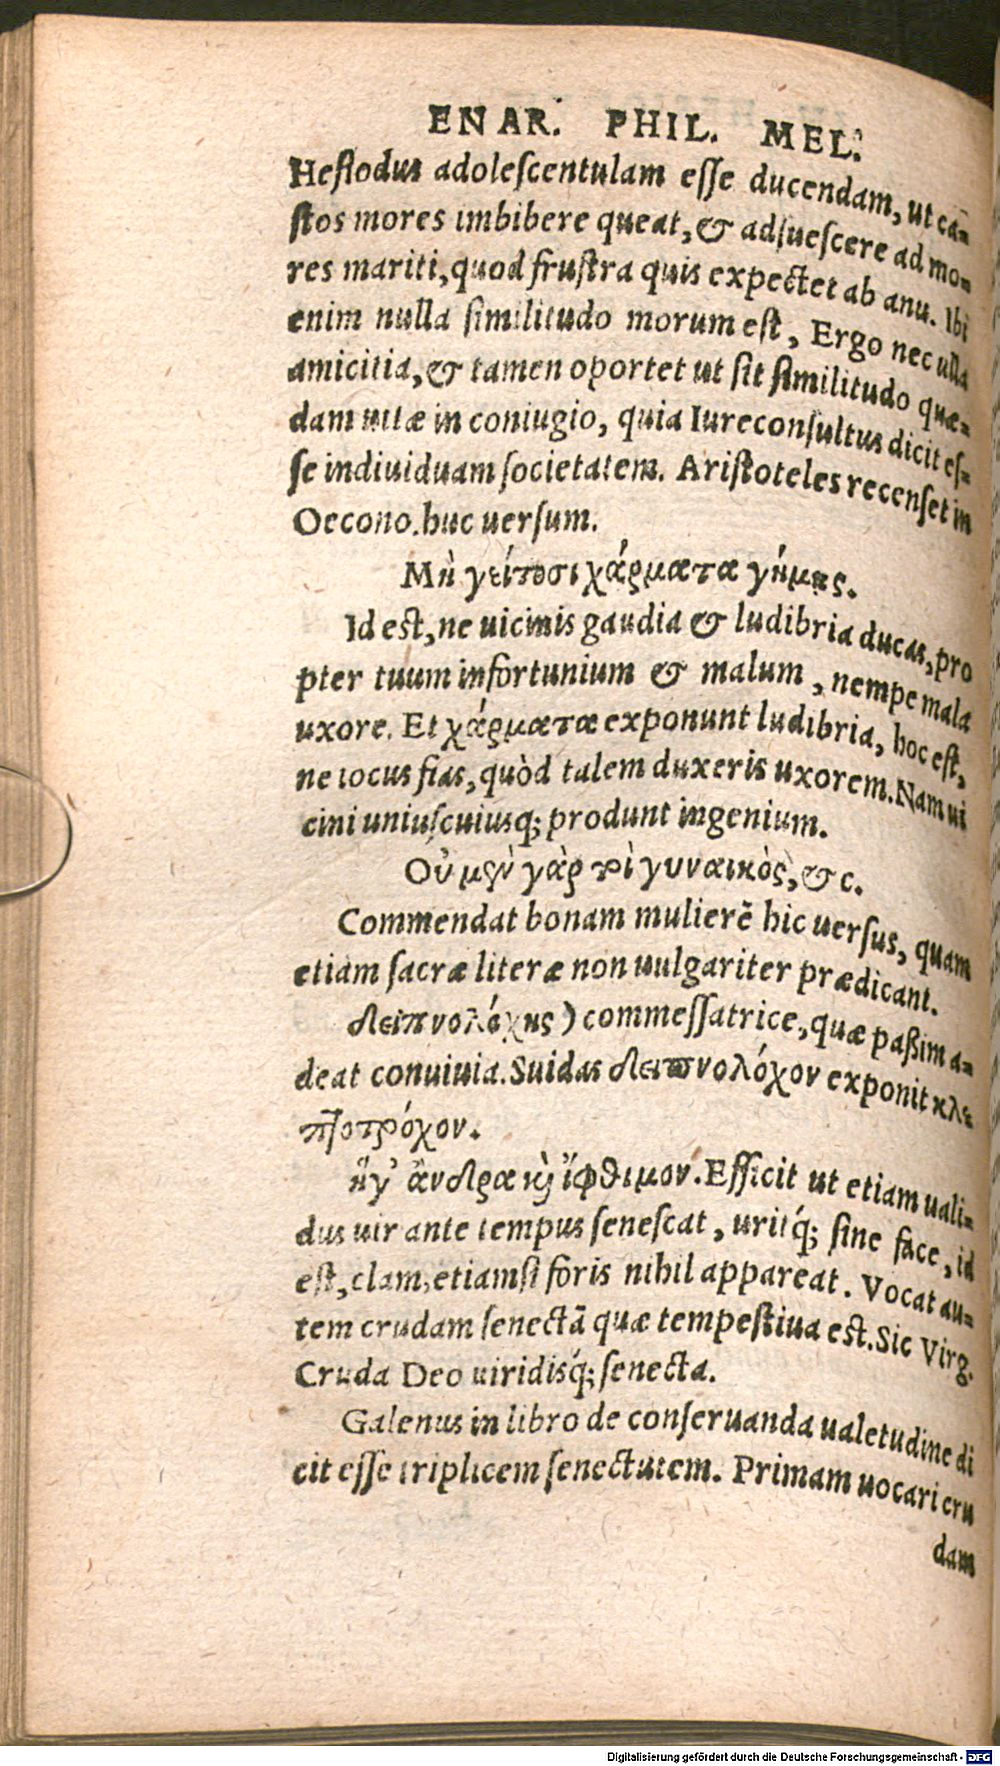 ENAR. PHIL. MEL.
Hesiodus adolescentulam esse ducendam, ut ca-
stos mores imbibere queat, & adsuescere ad mo-
res mariti, quod frustra quis expectet ab anu. Ibi
enim nulla similitudo morum est, Ergo nec ulla
amicitia, & tamen oportet ut sit similitudo quæ-
dam uitæ in coniugio, quia Iureconsultus dicit es-
se indiuiduam societatem. Aristoteles recenset in
Oecono. huc uersum.
Μὴ γείτοσι χάρματα γήμῃς.
Id est, ne uicinis gaudia & ludibria ducas, pro
pter tuum infortunium & malum, nempe mala
uxore. Et χάρματα exponunt ludibria, hoc est,
ne iocus fias, quòd talem duxeris uxorem. Nam ui
cini uniuscuiusq; produnt ingenium.
Οὐ μὲν γὰρ τὶ γυναικὸς, &c.
Commendat bonam mulierẽ hic uersus, quam
etiam sacræ literæ non uulgariter prædicant.
δειπνολόχης) commessatrice, quæ paßim a-
deat conuiuia. Suidas δειπνολόχον exponit κλε
πτοτρόχον.
ἥγ' ἄνδρα κὶ ἴφθιμον. Efficit ut etiam uali-
dus uir ante tempus senescat, uritq́; sine face, id
est, clam, etiamsi foris nihil appareat. Vocat au-
tem crudam senectã quæ tempestiua est. Sic Virg.
Cruda Deo uiridisq́; senecta.
Galenus in libro de conseruanda ualetudine di
cit esse triplicem senectutem. Primam uocari cru
dam
Digitalisierung gefördert durch die Deutsche Forschungsgemeinschaft - DFG